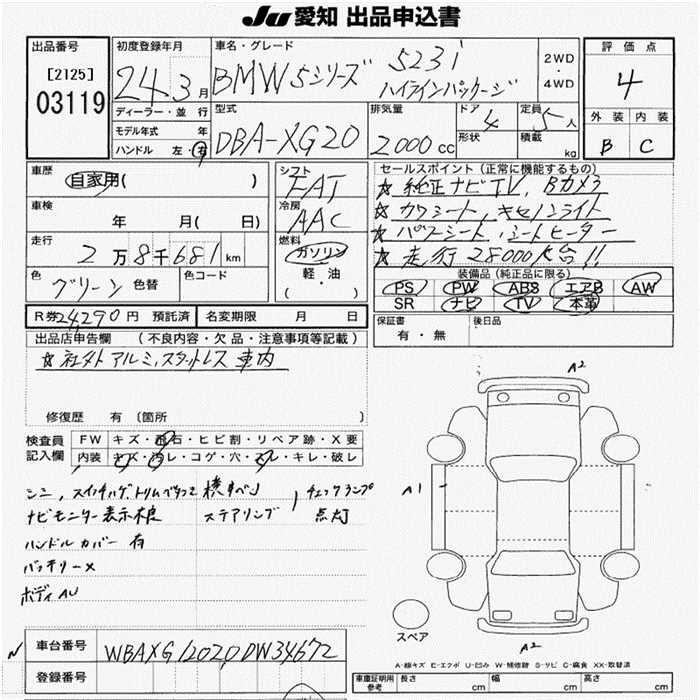 JU 愛知 出品申込書
出品番号 初度登録年月 車名・グレード 評価点
[2125] 24 3月 BMW 5シリーズ 523i 2WD・4WD 4
03119 ハイラインパッケージ
ディーラー・並行 型式 排気量 ドア 定員 外装 内装
モデル年式 年 DBA-XG20 2000cc 4 5人 B C
ハンドル 左・右 形状 積載 kg
車歴 シフト セールスポイント(正常に機能するもの)
自家用( ) FAT ☆ 純正ナビTV, Bカメラ
車検 冷房 ☆ パワーシート, キセノンライト
年 月( 日) AAC ☆ パワーシート, シートヒーター
走行 燃料 ☆ 走行28000K台!!
2万8千681km ガソリン
色 色替 色コード 軽・油 装備品(純正品に限る)
グリーン ( ) PS PW ABS エアB AW
SR ナビ TV 本革
R券 24,290円 預託済 名変期限 月 日 保証書 後日品
有・無
出品店申告欄(不良内容・欠品・注意事項等記載)
☆社外アルミ,スタットレス 車内
A2
修復歴 有 〔箇所 〕
検査員 FW キズ・飛石・ヒビ割・リペア跡・X要
記入欄 内装 キズ・汚レ・コゲ・穴・スレ・キレ・破レ
A1
シミ, チェックランプ
ナビモニター表示不良 ステアリング 点灯
ハンドルカバー有
バッテリー×
ボディAU
スペア
A2
N 車台番号 WBAXG12020DW34672
A-線キズ E-エクボ U-凹み W-補修跡 S-サビ C-腐食 XX-取替済
登録番号 車庫証明用参考 長さ cm 幅 cm 高さ cm